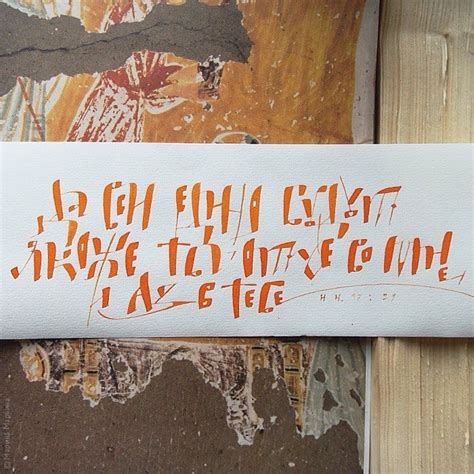 ДА ВСИ ЕДИНО БУДУТ
ЯКОЖЕ ТЫ ОТЧЕ ВО МНЕ
И АЗ В ТЕБЕ ИН. 17:21